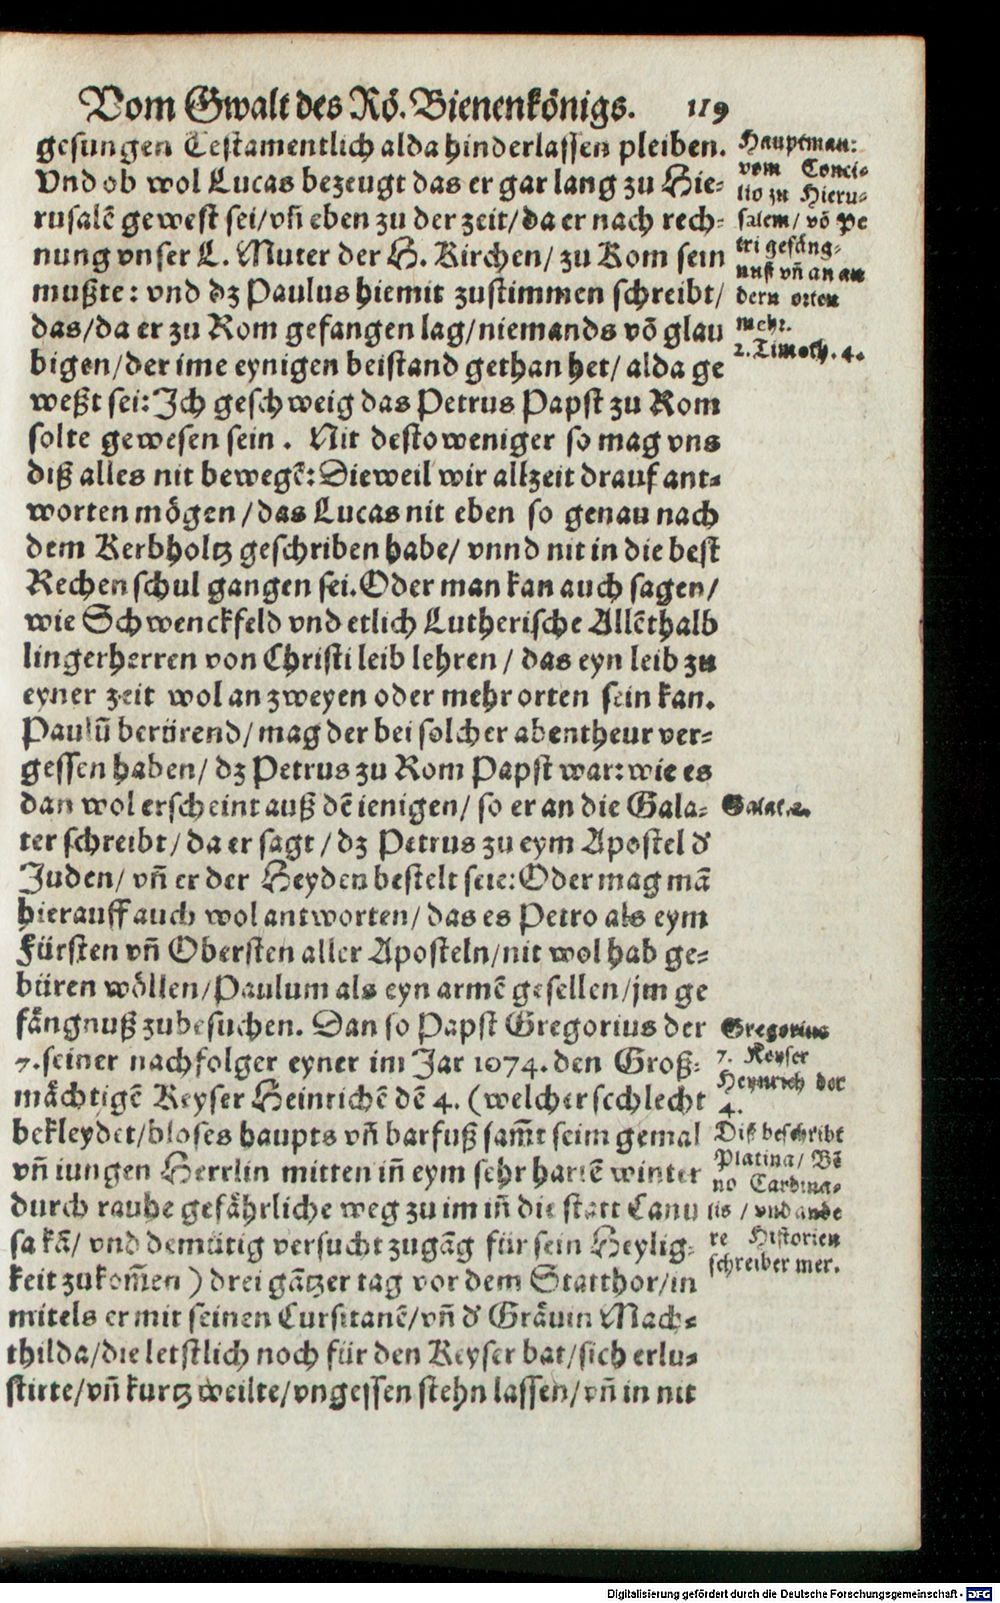 Vom Gwalt des Rö. Bienenkönigs. 119
gesungen Testamentlich alda hinderlassen pleiben.
Vnd ob wol Lucas bezeugt das er gar lang zu Hie-
rusalē gewest sei/vñ eben zu der zeit/da er nach rech-
nung vnser L. Muter der H. Kirchen/ zu Rom sein
mußte: vnd dz Paulus hiemit zustimmen schreibt/
das/da er zu Rom gefangen lag/niemands vō glau
bigen/der ime eynigen beistand gethan het/ alda ge
weßt sei: Ich geschweig das Petrus Papst zu Rom
solte gewesen sein. Nit destoweniger so mag vns
diß alles nit bewegē: Dieweil wir allzeit drauf ant-
worten mögen/das Lucas nit eben so genau nach
dem Kerbholtz geschriben habe/ vnnd nit in die best
Rechenschul gangen sei. Oder man kan auch sagen/
wie Schwenckfeld vnd etlich Lutherische Allēthalb
lingerherren von Christi leib lehren/ das eyn leib zu
eyner zeit wol an zweyen oder mehr orten sein kan.
Paulū berürend/ mag der bei solcher abentheur ver-
gessen haben/ dz Petrus zu Rom Papst war: wie es
dan wol erscheint auß dē ienigen/ so er an die Gala-
ter schreibt/ da er sagt/ dz Petrus zu eym Apostel d'
Juden/ vñ er der Heyden bestelt seie: Oder mag mā
hierauff auch wol antworten/ das es Petro als eym
Fürsten vñ Obersten aller Aposteln/nit wol hab ge-
büren wöllen/Paulum als eyn armē gesellen/jm ge
fängnuß zubesuchen. Dan so Papst Gregorius der
7. seiner nachfolger eyner im Jar 1074. den Groß-
mächtigē Keyser Heinrichē dē 4. (welcher schlecht
bekleydet/bloses haupts vñ barfuß sam̄t seim gemal
vñ iungen Herrlin mitten iñ eym sehr hartē winter
durch rauhe gefährliche weg zu im iñ die statt Canu
sa kā/ vnd demütig versucht zugāg für sein Heylig-
keit zukom̄en) drei gātzer tag vor dem Statthor/in
mitels er mit seinen Cursitanē/vñ d' Grävin Mach-
thilda/die letstlich noch für den Keyser bat/sich erlu-
stirte/vñ kurtzweilte/vngessen stehn lassen/vñ in nit
Hauptman:
vom Conci-
lio zu Hieru-
salem/ vō Pe
tri gefäng-
nuß vñ an an
dern orten
mehr.
2. Timoth. 4.
Galat. 2.
Gregorius
7. Keyser
Heynrich der
4.
Diß beschribt
Platina/ Bē
no Cardina-
lis/ vnd ande
re Historien
schreiber mer.
Digitalisierung gefördert durch die Deutsche Forschungsgemeinschaft - DFG